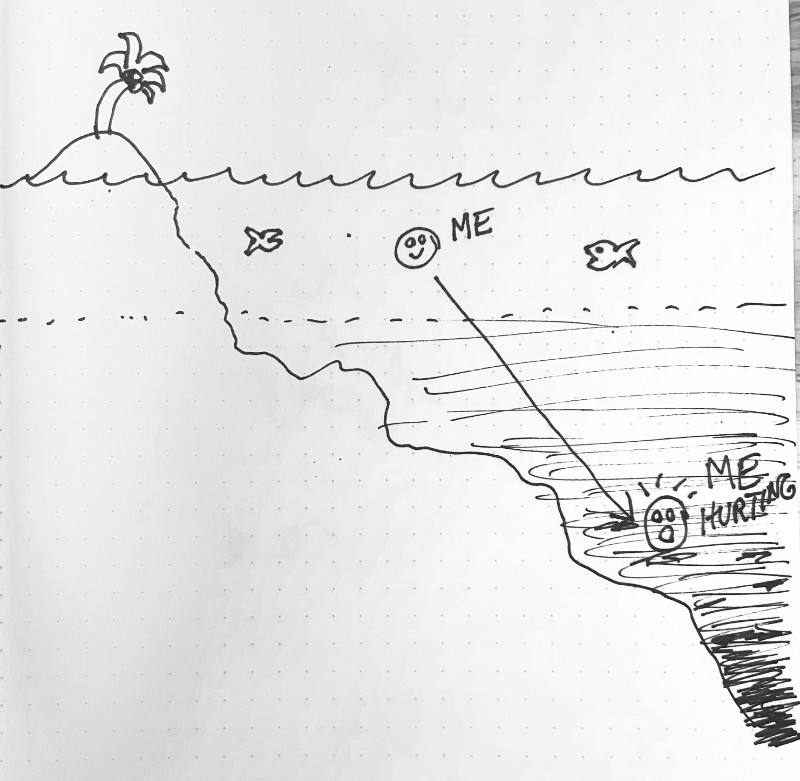 ME
ME
HURTING